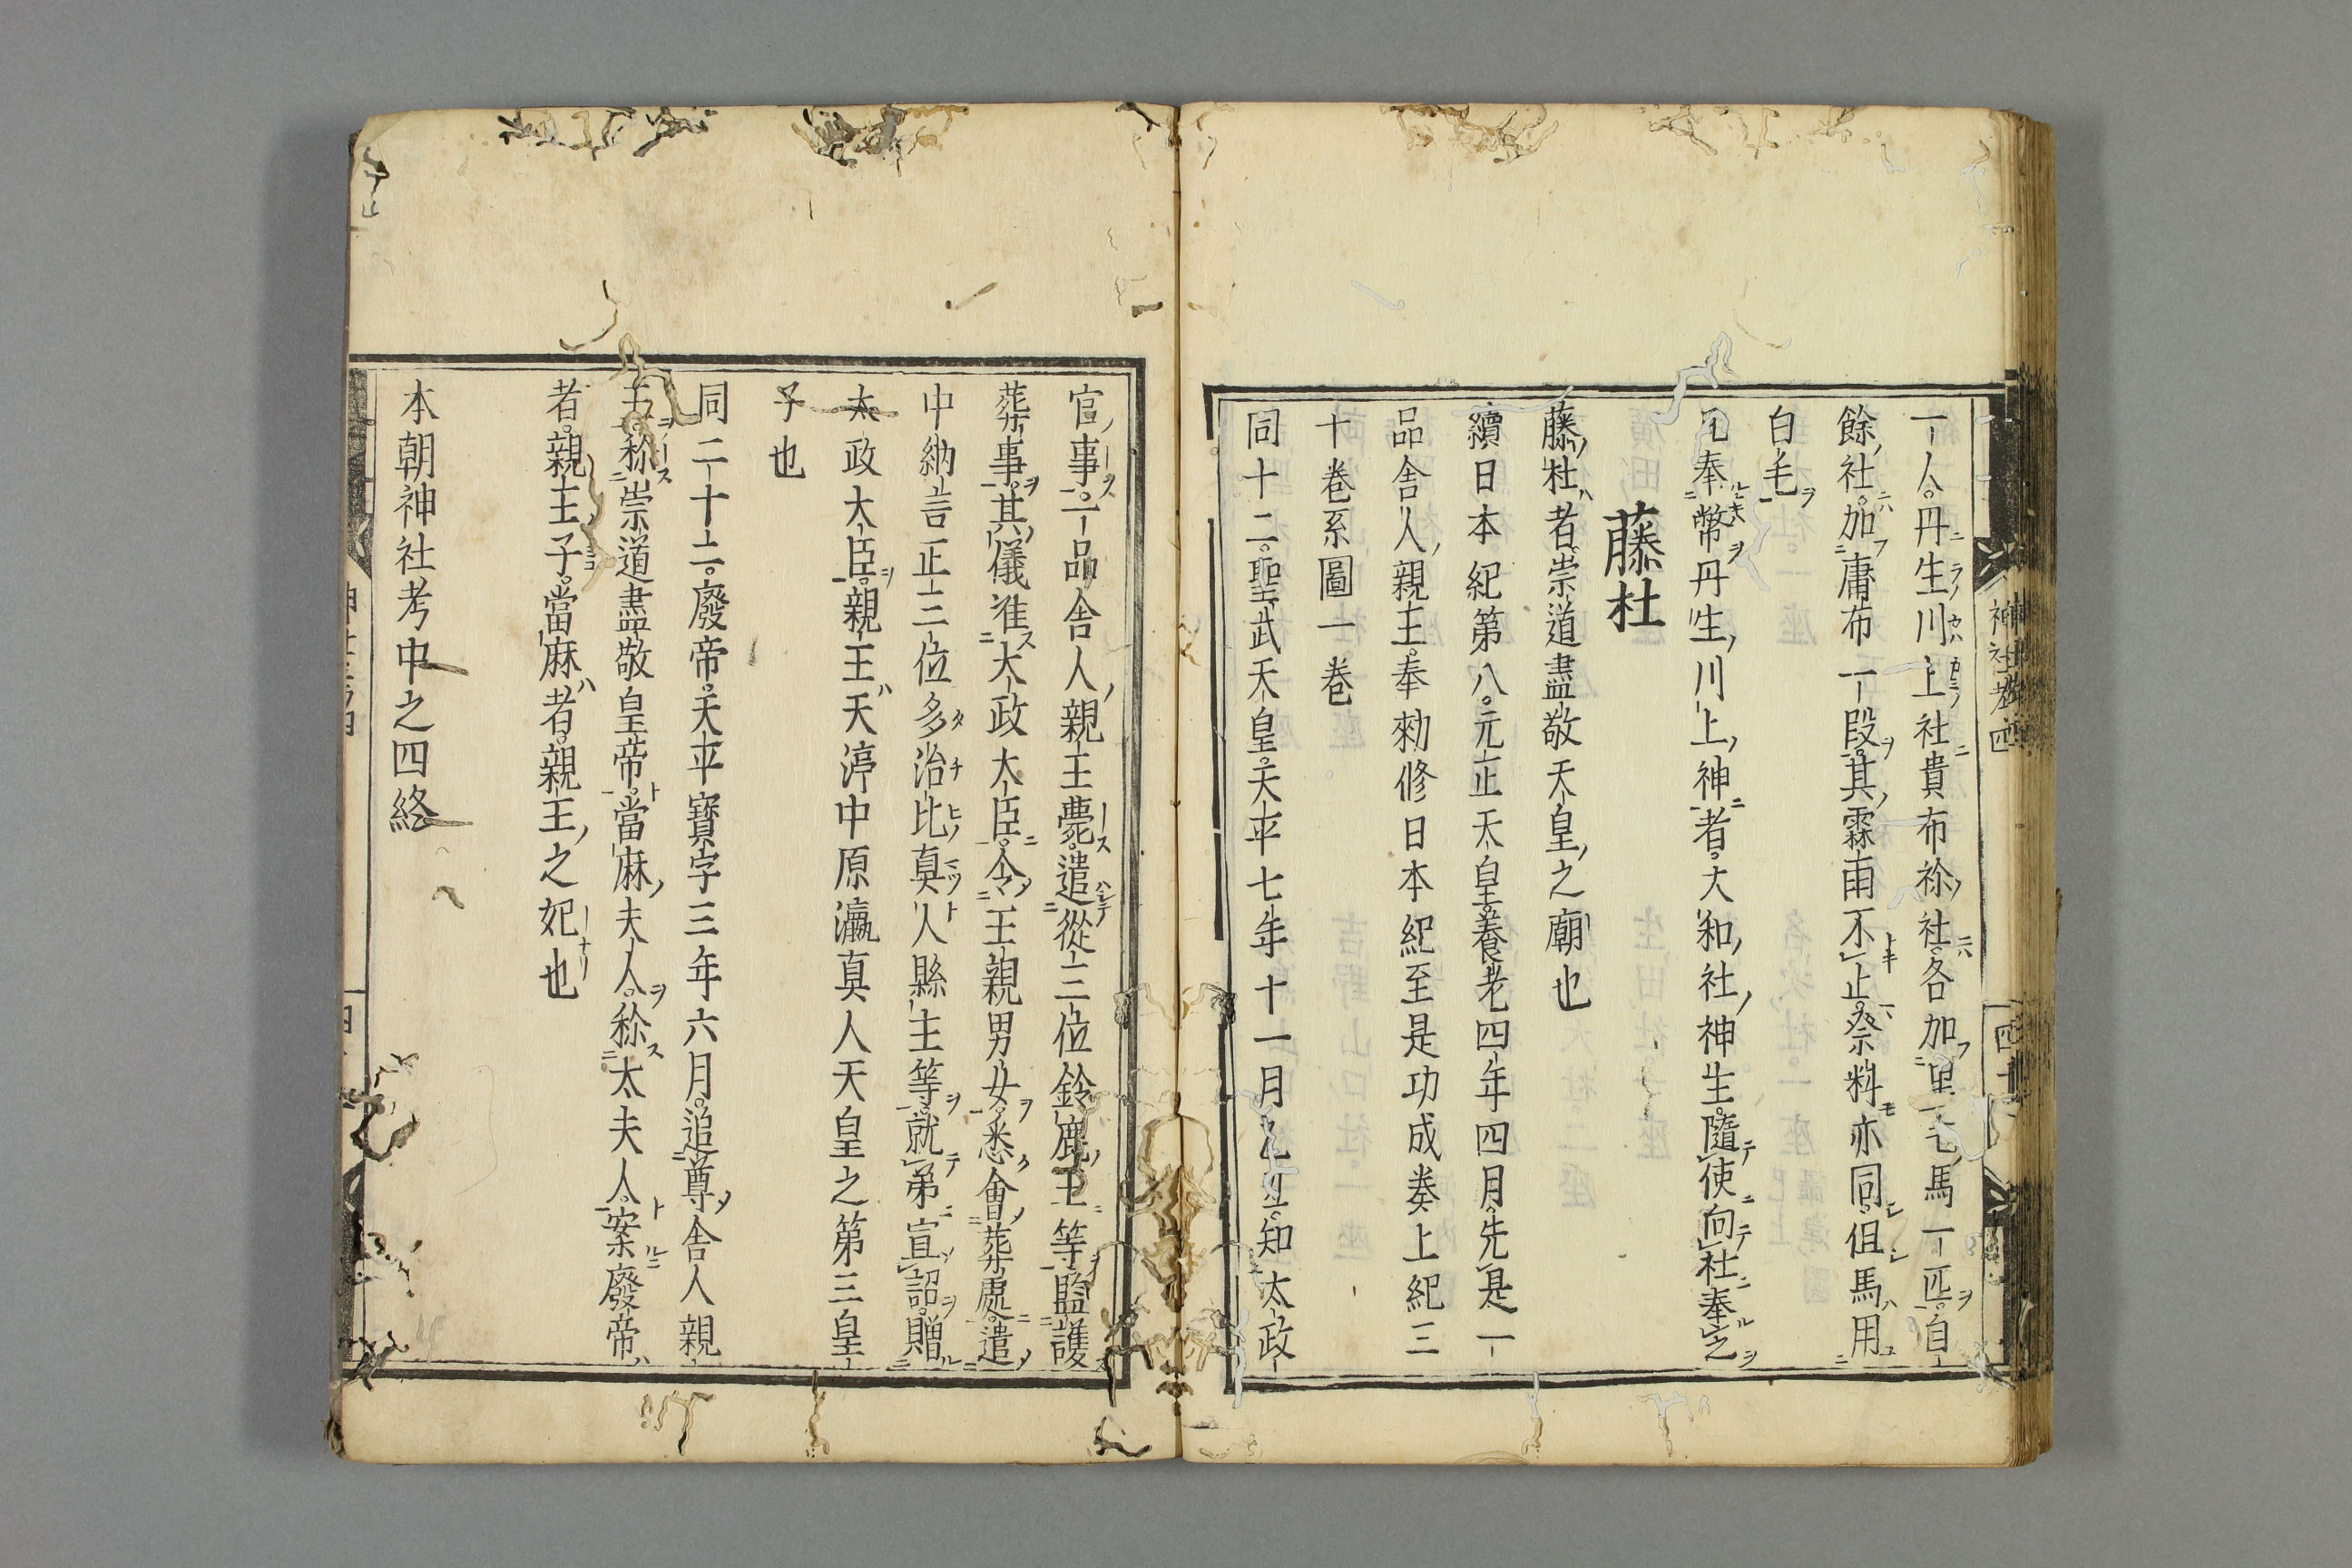 一人丹生川上社貴布祢社各加黒毛馬一匹自
餘社加庸布一段其霖雨不止祭料亦同但馬用
白毛
凡奉幣丹生川上神者大和社神主隨使向社奉之
藤杜
藤杜者崇道盡敬天皇之廟也
續日本紀第八元正天皇養老四年四月先是一
品舎人親王奉勅修日本紀至是功成奏上紀三
十卷系圖一卷
同十二聖武天皇天平七年十一月乙丑知太政
官事一品舎人親王薨遣從三位鈴鹿王等監護
葬事其儀准太政大臣令王親男女悉會葬處遣
中納言正三位多治比真人縣主等就第宣詔贈
太政大臣親王天渟中原瀛真人天皇之第三皇
子也
同二十二廢帝天平寶字三年六月追尊舎人親
王稱崇道盡敬皇帝當麻夫人稱太夫人案廢帝
者親王子當麻者親王之妃也
本朝神社考中之四終